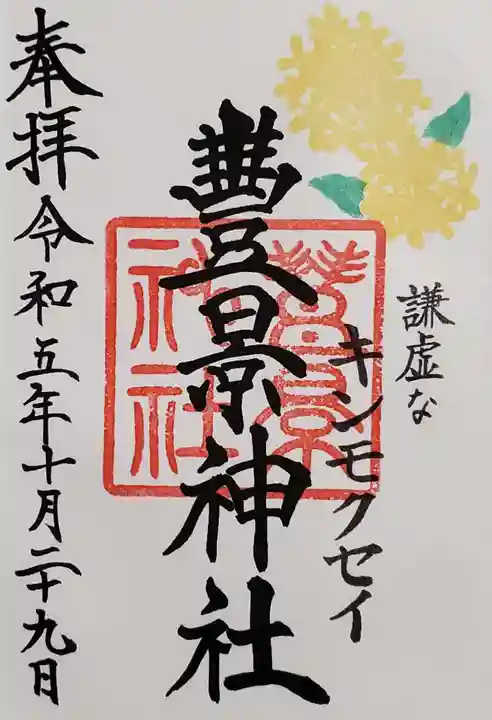 謙虚な
キンモクセイ
豊景神社
豊景
神社
奉拝令和五年十月二十九日